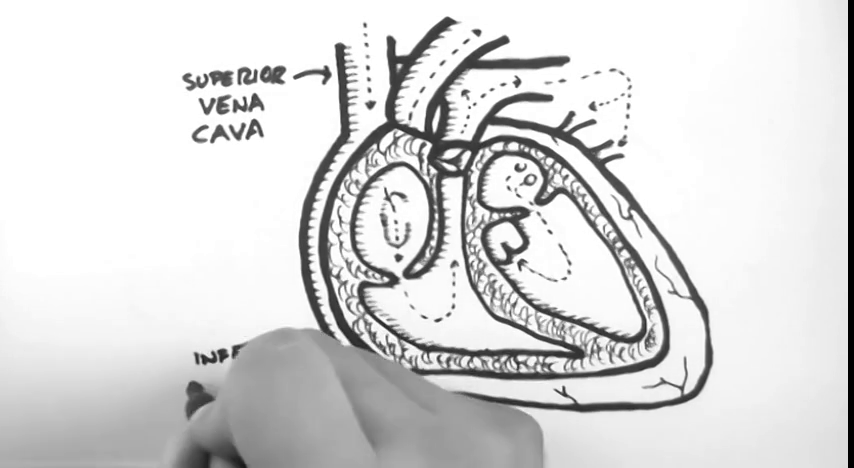 SUPERIOR
VENA
CAVA
INFE